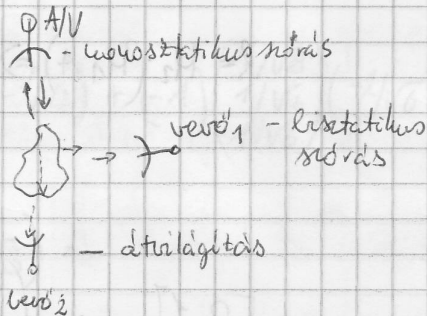 A/V
- monosztatikus szórás
vevő1 - bisztatikus
szórás
- átvilágítás
vevő2